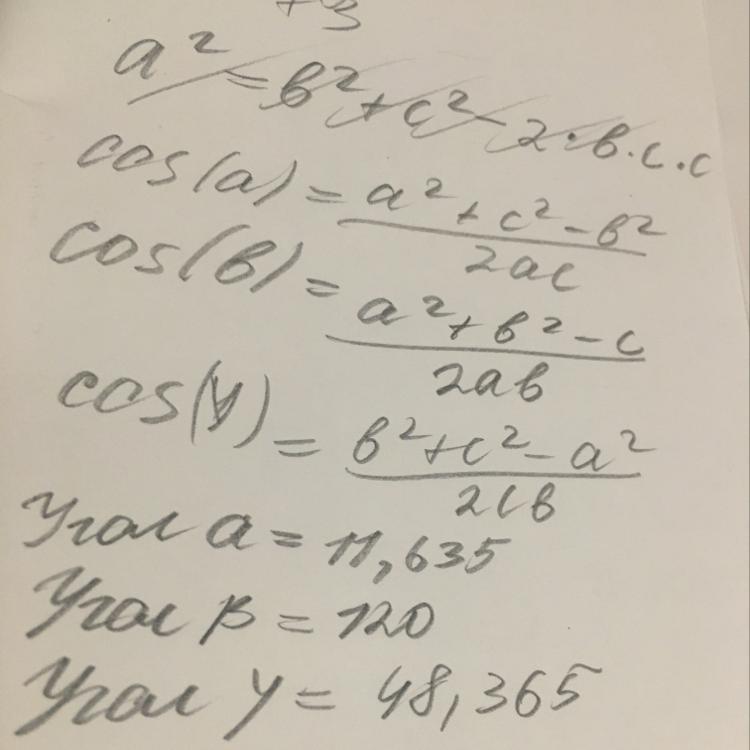 +3
a² = b² + c² - 2·b·c·c
cos(a) = a² + c² - b² / 2ac
cos(b) = a² + b² - c / 2ab
cos(γ) = b² + c² - a² / 2cb
Угол a = 11,635
Угол β = 120
Угол γ = 48,365